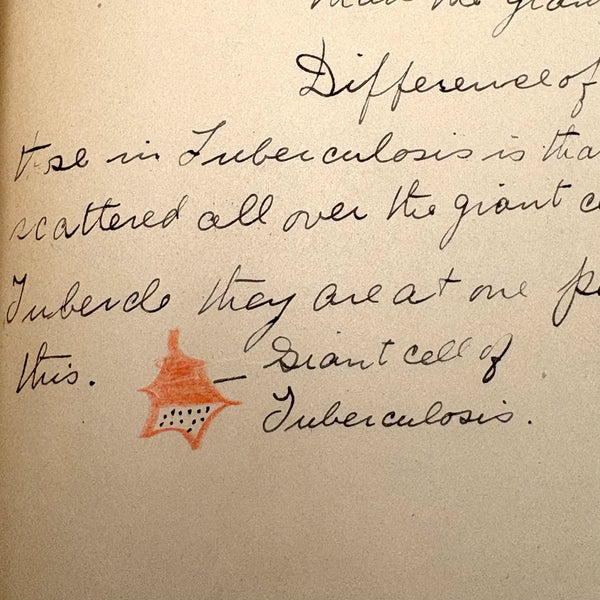 than the giant
Difference of
those in Tuberculosis is tha
scattered all over the giant c
Tubercle they are at one p
this. — Giant cell of
Tuberculosis.